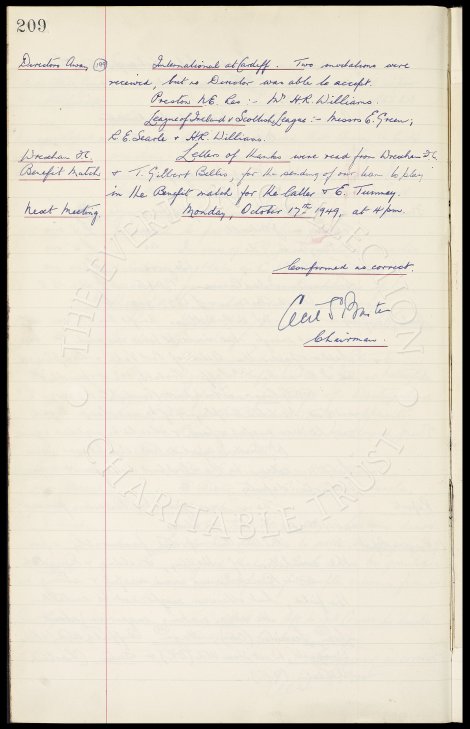 209
Directors Away 199 International at Cardiff. Two invitations were
received, but no Director was able to accept.
Preston N.E. Res :- Mr H.R. Williams.
League of Ireland v Scottish League :- Messrs E. Green,
R.E. Searle & H.R. Williams.
Wrexham F.C. Letters of thanks were read from Wrexham F.C.
Benefit Match & T. Gilbert Bellis, for the sending of our team to play
in the Benefit match for the latter & E. Tunney.
Next Meeting. Monday, October 17th 1949, at 4 pm.
Confirmed as correct.
Cecil S.
Chairman.
THE EVERTON COLLECTION
CHARITABLE TRUST